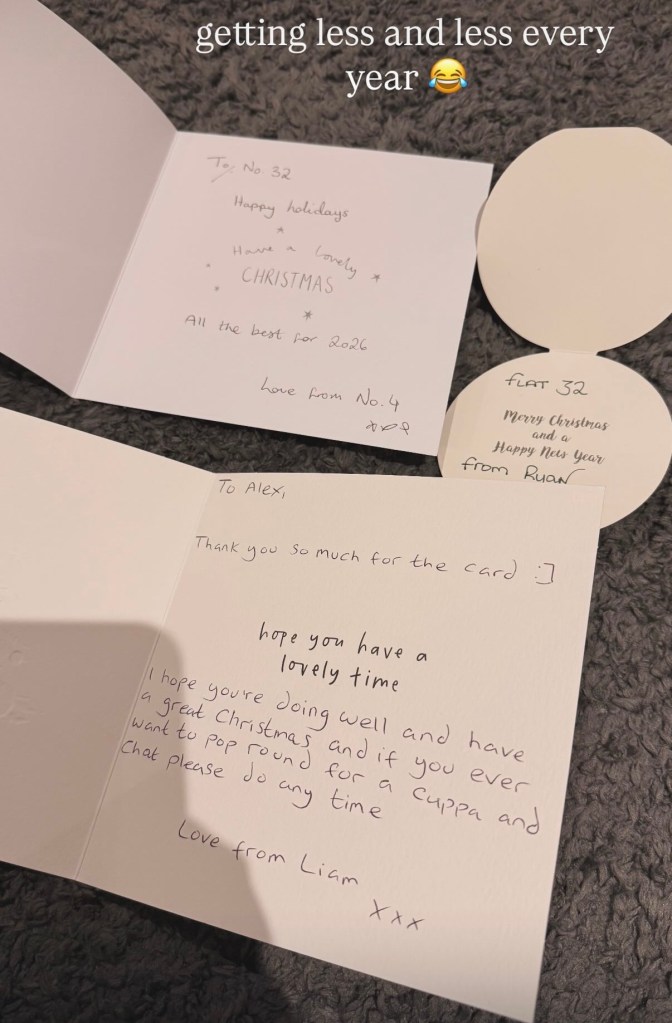 getting less and less every
year 😂
To, No. 32
Happy holidays
Have a lovely
CHRISTMAS
All the best for 2026
Love from No. 4
xxx
FLAT 32
Merry Christmas
and a
Happy New Year
from RYAN
To Alex,
Thank you so much for the card :]
hope you have a
lovely time
I hope you're doing well and have
a great Christmas and if you ever
want to pop round for a cuppa and
chat please do any time
Love from Liam
xxx